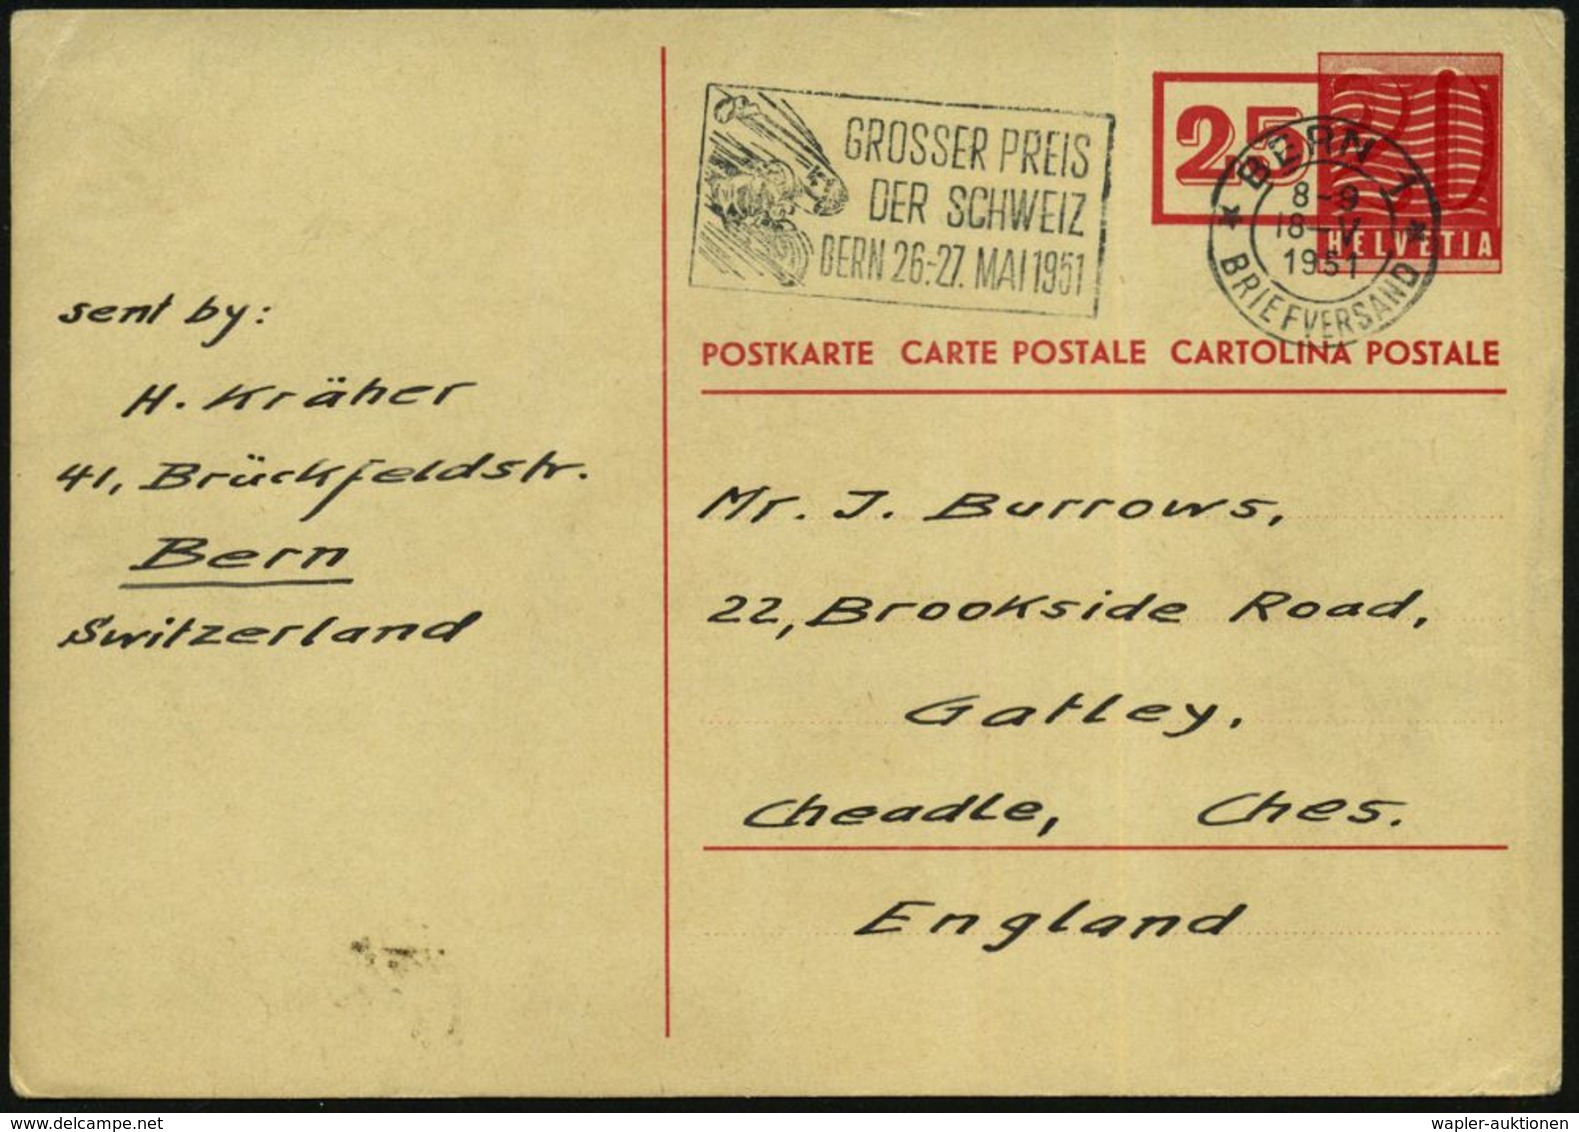 GROSSER PREIS
DER SCHWEIZ
BERN 26.-27. MAI 1951
25
20
HELVETIA
BERN 1
8-9
18-V
1951
BRIEFVERSAND
POSTKARTE CARTE POSTALE CARTOLINA POSTALE
sent by:
H. Kräher
41, Brückfeldstr.
Bern
Switzerland
Mr. J. Burrows,
22, Brookside Road,
Gatley,
Cheadle, Ches.
England
wapler-auktionen